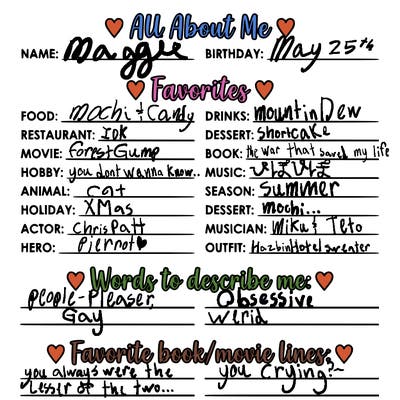 All About Me
NAME: Maggie BIRTHDAY: May 25th
Favorites
FOOD: mochi + Candy DRINKS: mountinDew
RESTAURANT: IDK DESSERT: Shortcake
MOVIE: ForestGump BOOK: the war that saved my life
HOBBY: you dont wanna know.. MUSIC:
ANIMAL: cat SEASON: summer
HOLIDAY: XMas DESSERT: mochi...
ACTOR: Chris Patt MUSICIAN: Miku & Teto
HERO: Pierrot OUTFIT: HazbinHotel sweater
Words to describe me:
people-Pleaser, Obsessive
Gay Werid
Favorite book/movie lines:
you always were the you Crying?~
lesser of the two...